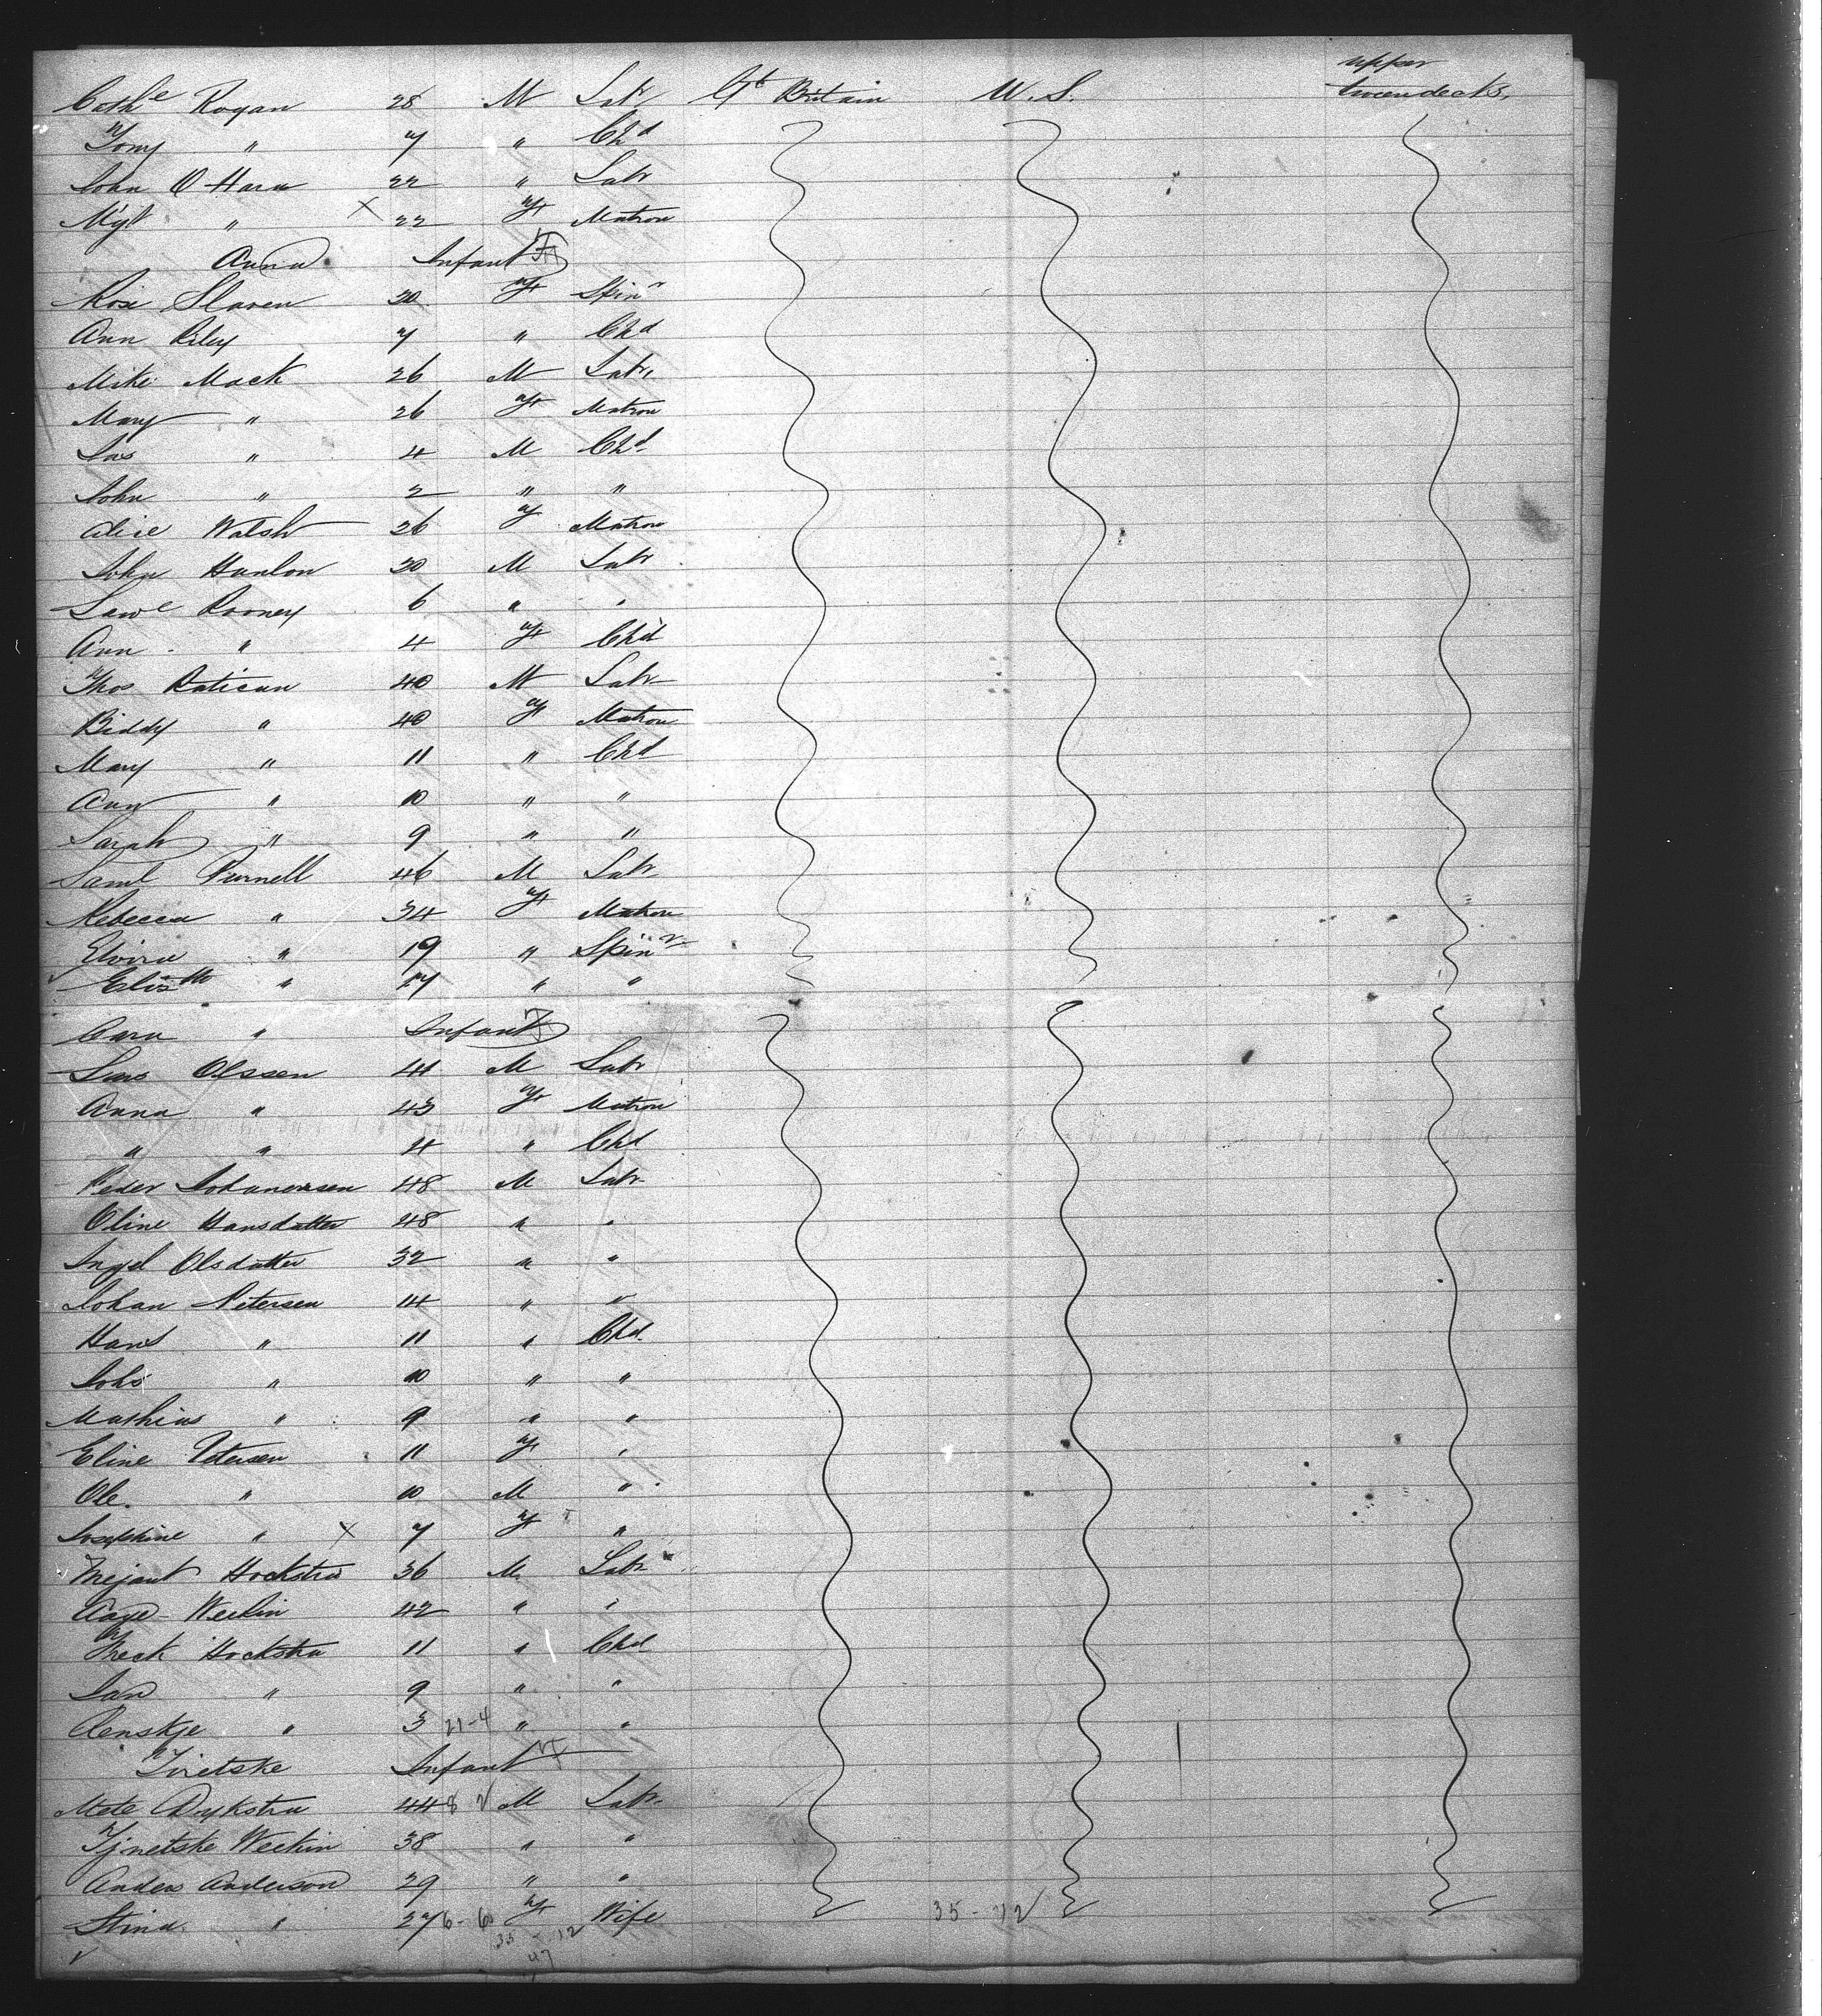 Cathe Rogan 28 M Labr Gt Britain U.S. upper tweendecks
Tomy " 7 " Chd
John O Hara 22 " Labr
Mgt " X 22 F Matron
Anna Infant F
Rose Slaven 20 F Spinr
Ann Riley 7 " Chd
Mike Mack 26 M Labr
Mary " 26 F Matron
Jas " 4 M Chd
John " 2 " "
Alice Walsh 26 F Matron
John Hanlon 20 M Labr
Lawe Rooney 6 " "
Ann " 4 F Chd
Thos Ratican 40 M Labr
Biddy " 40 F Matron
Mary " 11 " Chd
Ann " 10 " "
Sarah " 9 " "
Saml Purnell 46 M Labr
Rebecca " 34 F Matron
Elvira " 19 " Spinr
Elizth " 17 " "
Cara " Infant F
Lars Olssen 41 M Labr
Anna " 43 F Matron
" " 4 " Chd
Peder Johanessen 48 M Labr
Oline Hansdatter 48 " "
Ingel Olsdatter 32 " "
Johan Petersen 14 " "
Hans " 11 " Chd
Johs " 10 " "
Mathias " 9 " "
Eline Petersen 11 F "
Ole " 10 M "
Josephine " X 7 F "
Hockstra 36 M Labr
Aage Weekin 42 " "
Hockstra 11 " Chd
Jan " 9 " "
Renskje " 3 21-4 " "
Tretske Infant F
Mete Dykstra 44 8 M Labr
Tjnetske Weekin 38 " "
Anders Anderson 29 " "
Stina " 27 6-6 F Wife 35-12
35-12
47